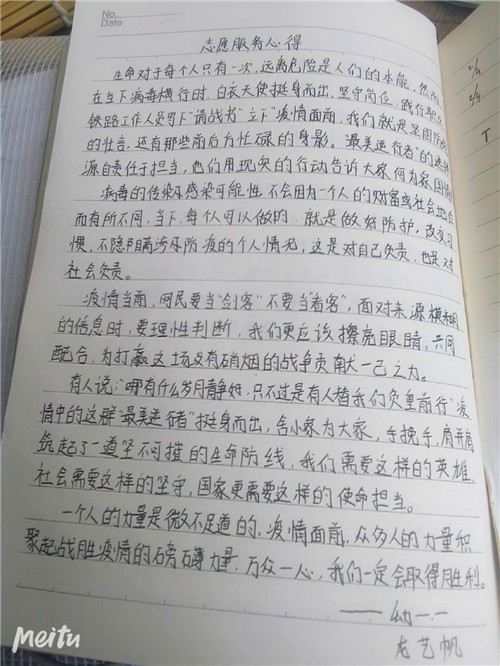 No.
Date
志愿服务心得
生命对于每个人只有一次,远离危险是人们的本能,然而
在当下病毒横行时,白衣天使挺身而出,坚守岗位,践行职
铁路工作人员写下"请战书"立下"疫情面前,我们就是坚固防
的壮言,还有那些前后方忙碌的身影。"最美逆行者"的选择
源自责任于担当,他们用现实的行动告诉大家何为家国情
病毒的传染及感染可能性不会因为一个人的财富或社会地
而有所不同,当下,每个人可以做的,就是做好防护,改变习
惯,不隐瞒涉及防疫的个人情况,这是对自己负责,也是对
社会负责。
疫情当前,网民要当"剑客"不要当"看客",面对来源模糊
的信息时,要理性判断,我们更应该擦亮眼睛,共同
配合,为打赢这场没有硝烟的战争贡献一己之力。
有人说:"哪有什么岁月静好,只不过是有人替我们负重前行"疫
情中的这群"最美逆行者"挺身而出,舍小家为大家,手挽手,肩并肩
筑起了一道坚不可摧的生命防线,我们需要这样的英雄,
社会需要这样的坚守,国家更需要这样的使命担当。
一个人的力量是微不足道的,疫情面前,众多人的力量积
聚起战胜疫情的磅礴力量,万众一心,我们一定会取得胜利。
——幼一.一
龙艺帆
Meitu
2/4
T